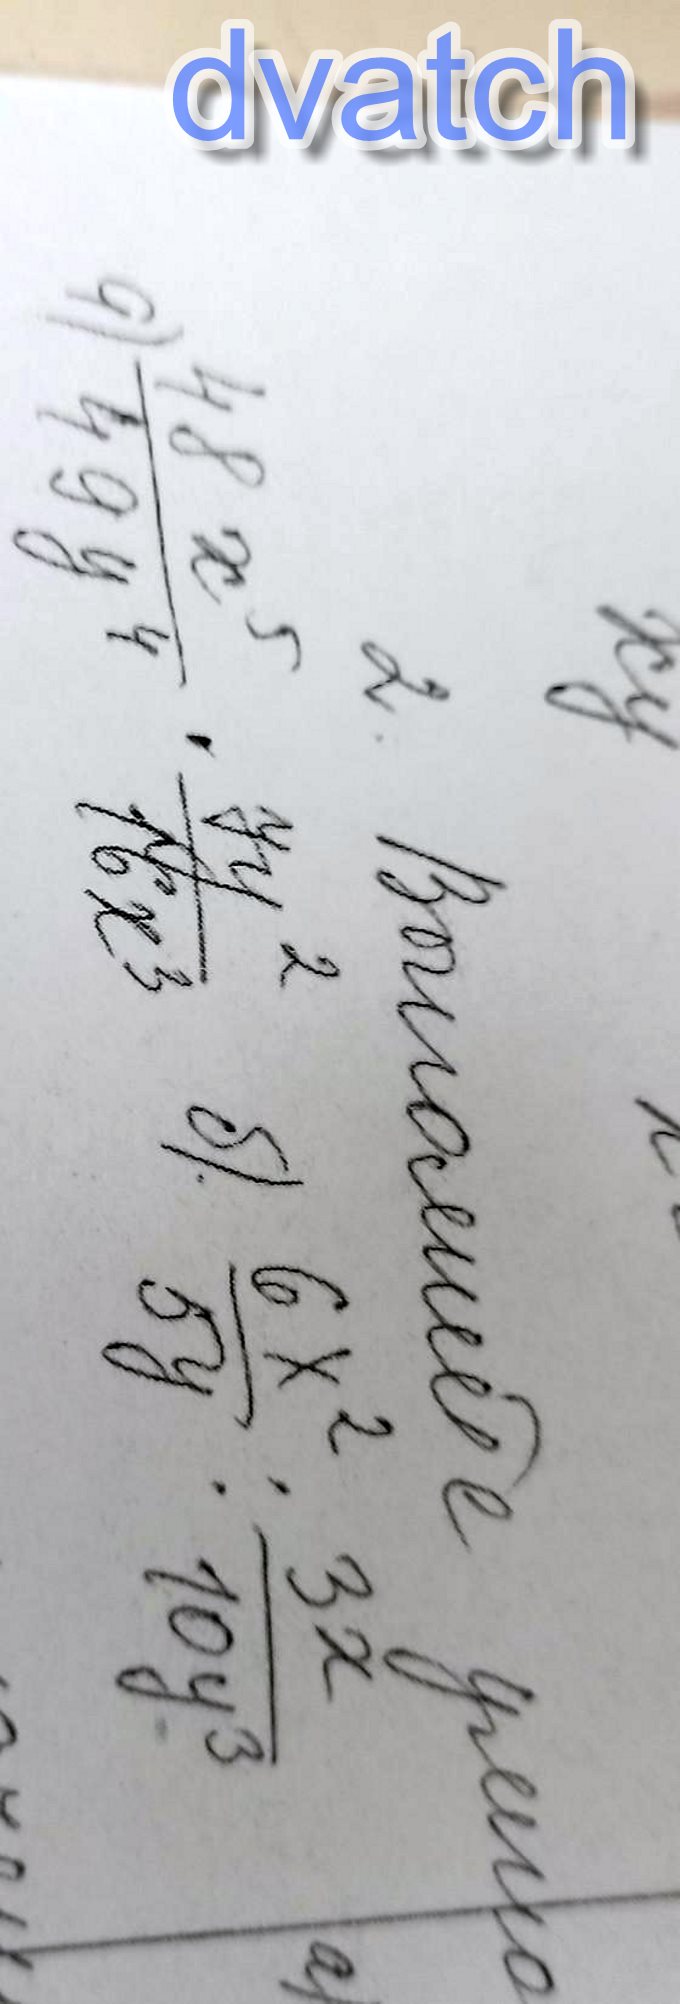 dvatch
xy
2. Выполнете
а) 48x⁵/49y⁴ · 7y²/16x³ б) 6x²/5y : 3x/10y³
а)